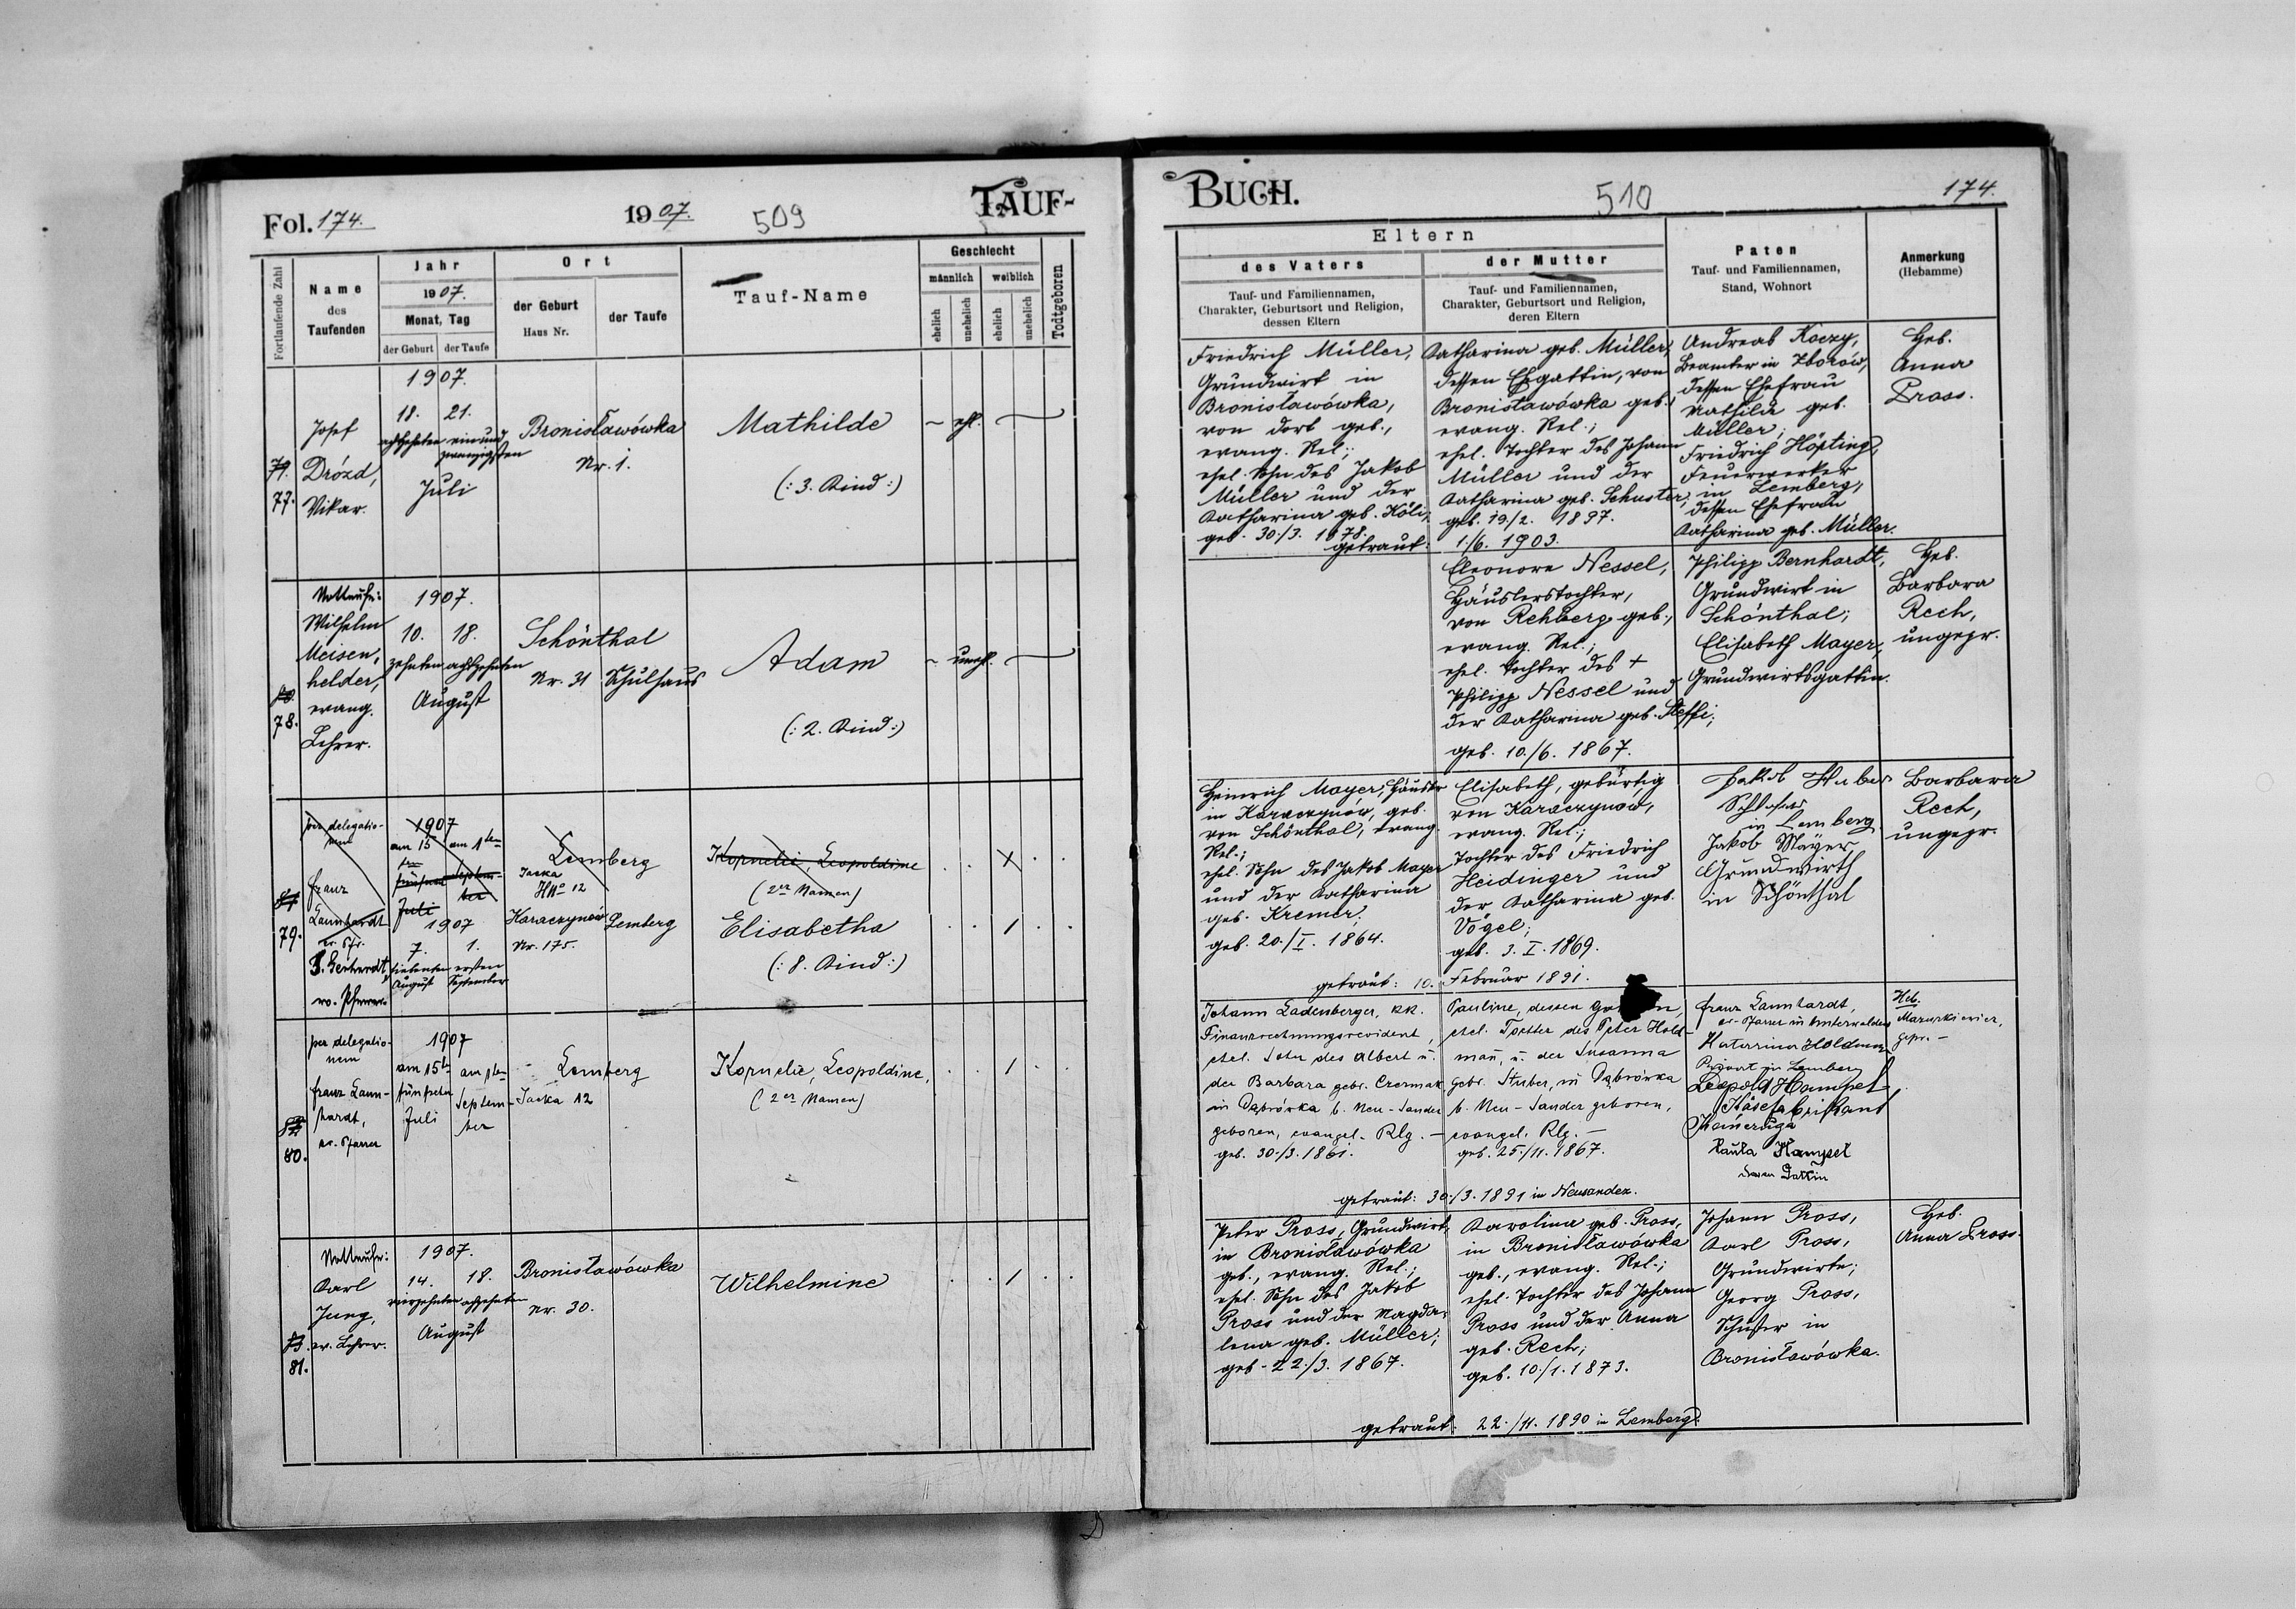 Fol. 174.
1907.
509
TAUF-
Fortlaufende Zahl
Name
des
Taufenden
Jahr
1907.
Monat, Tag
der Geburt
der Taufe
Ort
der Geburt
Haus Nr.
der Taufe
Tauf-Name
Geschlecht
männlich
weiblich
ehelich
unehelich
ehelich
unehelich
Todtgeboren
77.
Josef
Drózd,
Vikar.
1907.
18. 21.
achtzehnten einund
zwanzigsten
Juli
Bronisławówka
Nr. 1.
Mathilde
(: 3. Kind :)
ehl.
78.
Nottaufe:
Wilhelm
Meisen,
helder,
evang.
Lehrer.
1907.
10. 18.
zehnten achtzehnten
August
Schönthal
Nr. 31 Schulhaus
Adam
(: 2. Kind :)
unehl.
79.
per delegatio-
nem
Franz
Launhardt
ev. Pfr.
ev. Pfarrer
1907
am 15 am 1ten
ten
Septem-
ber
Juli
1907
7. 1.
siebenten ersten
August September
Lemberg
Janka
HNo 12
Karaczynów Lemberg
Nr. 175.
Kornelie, Leopoldine
(2er Namen)
Elisabetha
(: 8. Kind :)
80.
per delegatio-
nem
Franz Laun-
hardt,
ev. Pfarrer
1907
am 15ten am 1ten
fünfzehn
Septem-
ber
Juli
Lemberg
Janka 12
Kornelie, Leopoldine,
(2er Namen)
81.
Nottaufe:
Karl
Jung,
ev. Lehrer.
1907.
14. 18.
vierzehnten achtzehnten
August
Bronisławówka
Nr. 30.
Wilhelmine
BUCH.
510
174.
Eltern
des Vaters
Tauf- und Familiennamen,
Charakter, Geburtsort und Religion,
dessen Eltern
der Mutter
Tauf- und Familiennamen,
Charakter, Geburtsort und Religion,
deren Eltern
Paten
Tauf- und Familiennamen,
Stand, Wohnort
Anmerkung
(Hebamme)
Friedrich Müller,
Grundwirt in
Bronisławówka,
von dort geb.,
evang. Rel.;
ehel. Sohn des Jakob
Müller und der
Katharina geb. Köli;
geb. 30./3. 1878.
Katharina geb. Müller,
dessen Ehgattin, von
Bronisławówka geb.,
evang. Rel.;
ehel. Tochter des Johann
Müller und der
Katharina geb. Schuster;
geb. 19./2. 1897.
getraut: 1./6. 1903.
Andreas Koczy,
Beamter in Zborów,
dessen Ehefrau
Mathilde geb.
Müller;
Friedrich Höpting,
Feuerwerker
in Lemberg,
dessen Ehefrau
Katharina geb. Müller.
Heb.
Anna
Pross.
Eleonore Nessel,
Häuslerstochter,
von Rehberg geb.,
evang. Rel.;
ehel. Tochter des +
Philipp Nessel und
der Katharina geb. Steffi;
geb. 10./6. 1867.
Philipp Bernhardt,
Grundwirt in
Schönthal;
Elisabeth Mayer,
Grundwirtsgattin.
Heb.
Barbara
Rech,
ungepr.
Heinrich Mayer, Häusler
in Karaczynów, geb.
von Schönthal, evang.
Rel.;
ehel. Sohn des Jakob Mayer
und der Katharina
geb. Kremer;
geb. 20./I. 1864.
Elisabeth, gebürtig
von Karaczynów,
evang. Rel.;
Tochter des Friedrich
Heidinger und
der Katharina geb.
Vögel;
geb. 3. I. 1869.
getraut: 10. Februar 1891.
Jakob Huber
in Lemberg
Jakob Mayer
Grundwirth
in Schönthal
Barbara
Rech,
ungepr.
Johann Ladenberger, k.k.
Finanzrechnungsrevident,
ehel. Sohn des Albert u.
der Barbara gebr. Czermak
in Dąbrówka b. Neu-Sandez
geboren, evangel. Rlg. —
geb. 30./3. 1861.
Pauline, dessen
ehel. Tochter des Peter Hold-
mañ, u. der Susanna
gebr. Stuber, in Dąbrówka
b. Neu-Sandez geboren,
evangel. Rlg. —
geb. 25./11. 1867.
getraut: 30./3. 1891 in Neusandez.
Franz Launhardt,
ev. Pfarrer in Unterwalden
Katarina Holdman
Privat in Lemberg
Leopold Hampel
Käsefabrikant
Kamerduga
Paula Hampel
deren Gattin
Heb.
Mazurkiewicz,
gepr. —
Peter Pross, Grundwirt,
in Bronisławówka
geb., evang. Rel.;
ehel. Sohn des Jakob
Pross und der Magda-
lena geb. Müller;
geb. 22./3. 1867.
Karolina geb. Pross,
in Bronisławówka
geb., evang. Rel.;
ehel. Tochter des Johann
Pross und der Anna
geb. Rech;
geb. 10./1. 1873.
getraut: 22./11. 1890 in Lemberg.
Johann Pross,
Karl Pross,
Grundwirte;
Georg Pross,
Schuster in
Bronisławówka.
Heb.
Anna Pross.